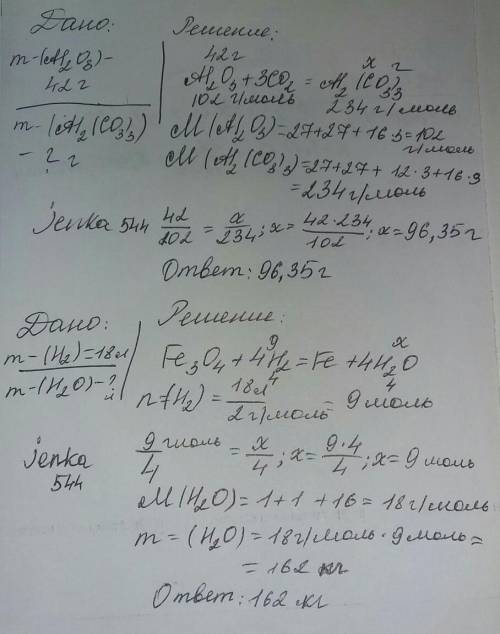 Дано:
m-(Al₂O₃)-
42г
m-(Al₂(CO₃)₃)
-? г
Решение:
42г x г
Al₂O₃+3CO₂ = Al₂(CO₃)₃
102 г/моль 234 г/моль
M(Al₂O₃)=27+27+16·3=102
г/моль
M(Al₂(CO₃)₃)=27+27+12·3+16·9
=234г/моль
jenka 544 42/102 = x/234; x= 42·234/102; x=96,35г
Ответ: 96,35г
Дано:
m-(H₂)=18л
m-(H₂O)-?
Решение:
9 x
Fe₃O₄+4H₂=Fe+4H₂O
4 4
n=(H₂)= 18л/2г/моль = 9моль
jenka
544
9 моль/4 = x/4; x= 9·4/4; x=9моль
M(H₂O)=1+1+16=18г/моль
m=(H₂O)=18г/моль·9моль=
=162 кг
Ответ: 162 кг